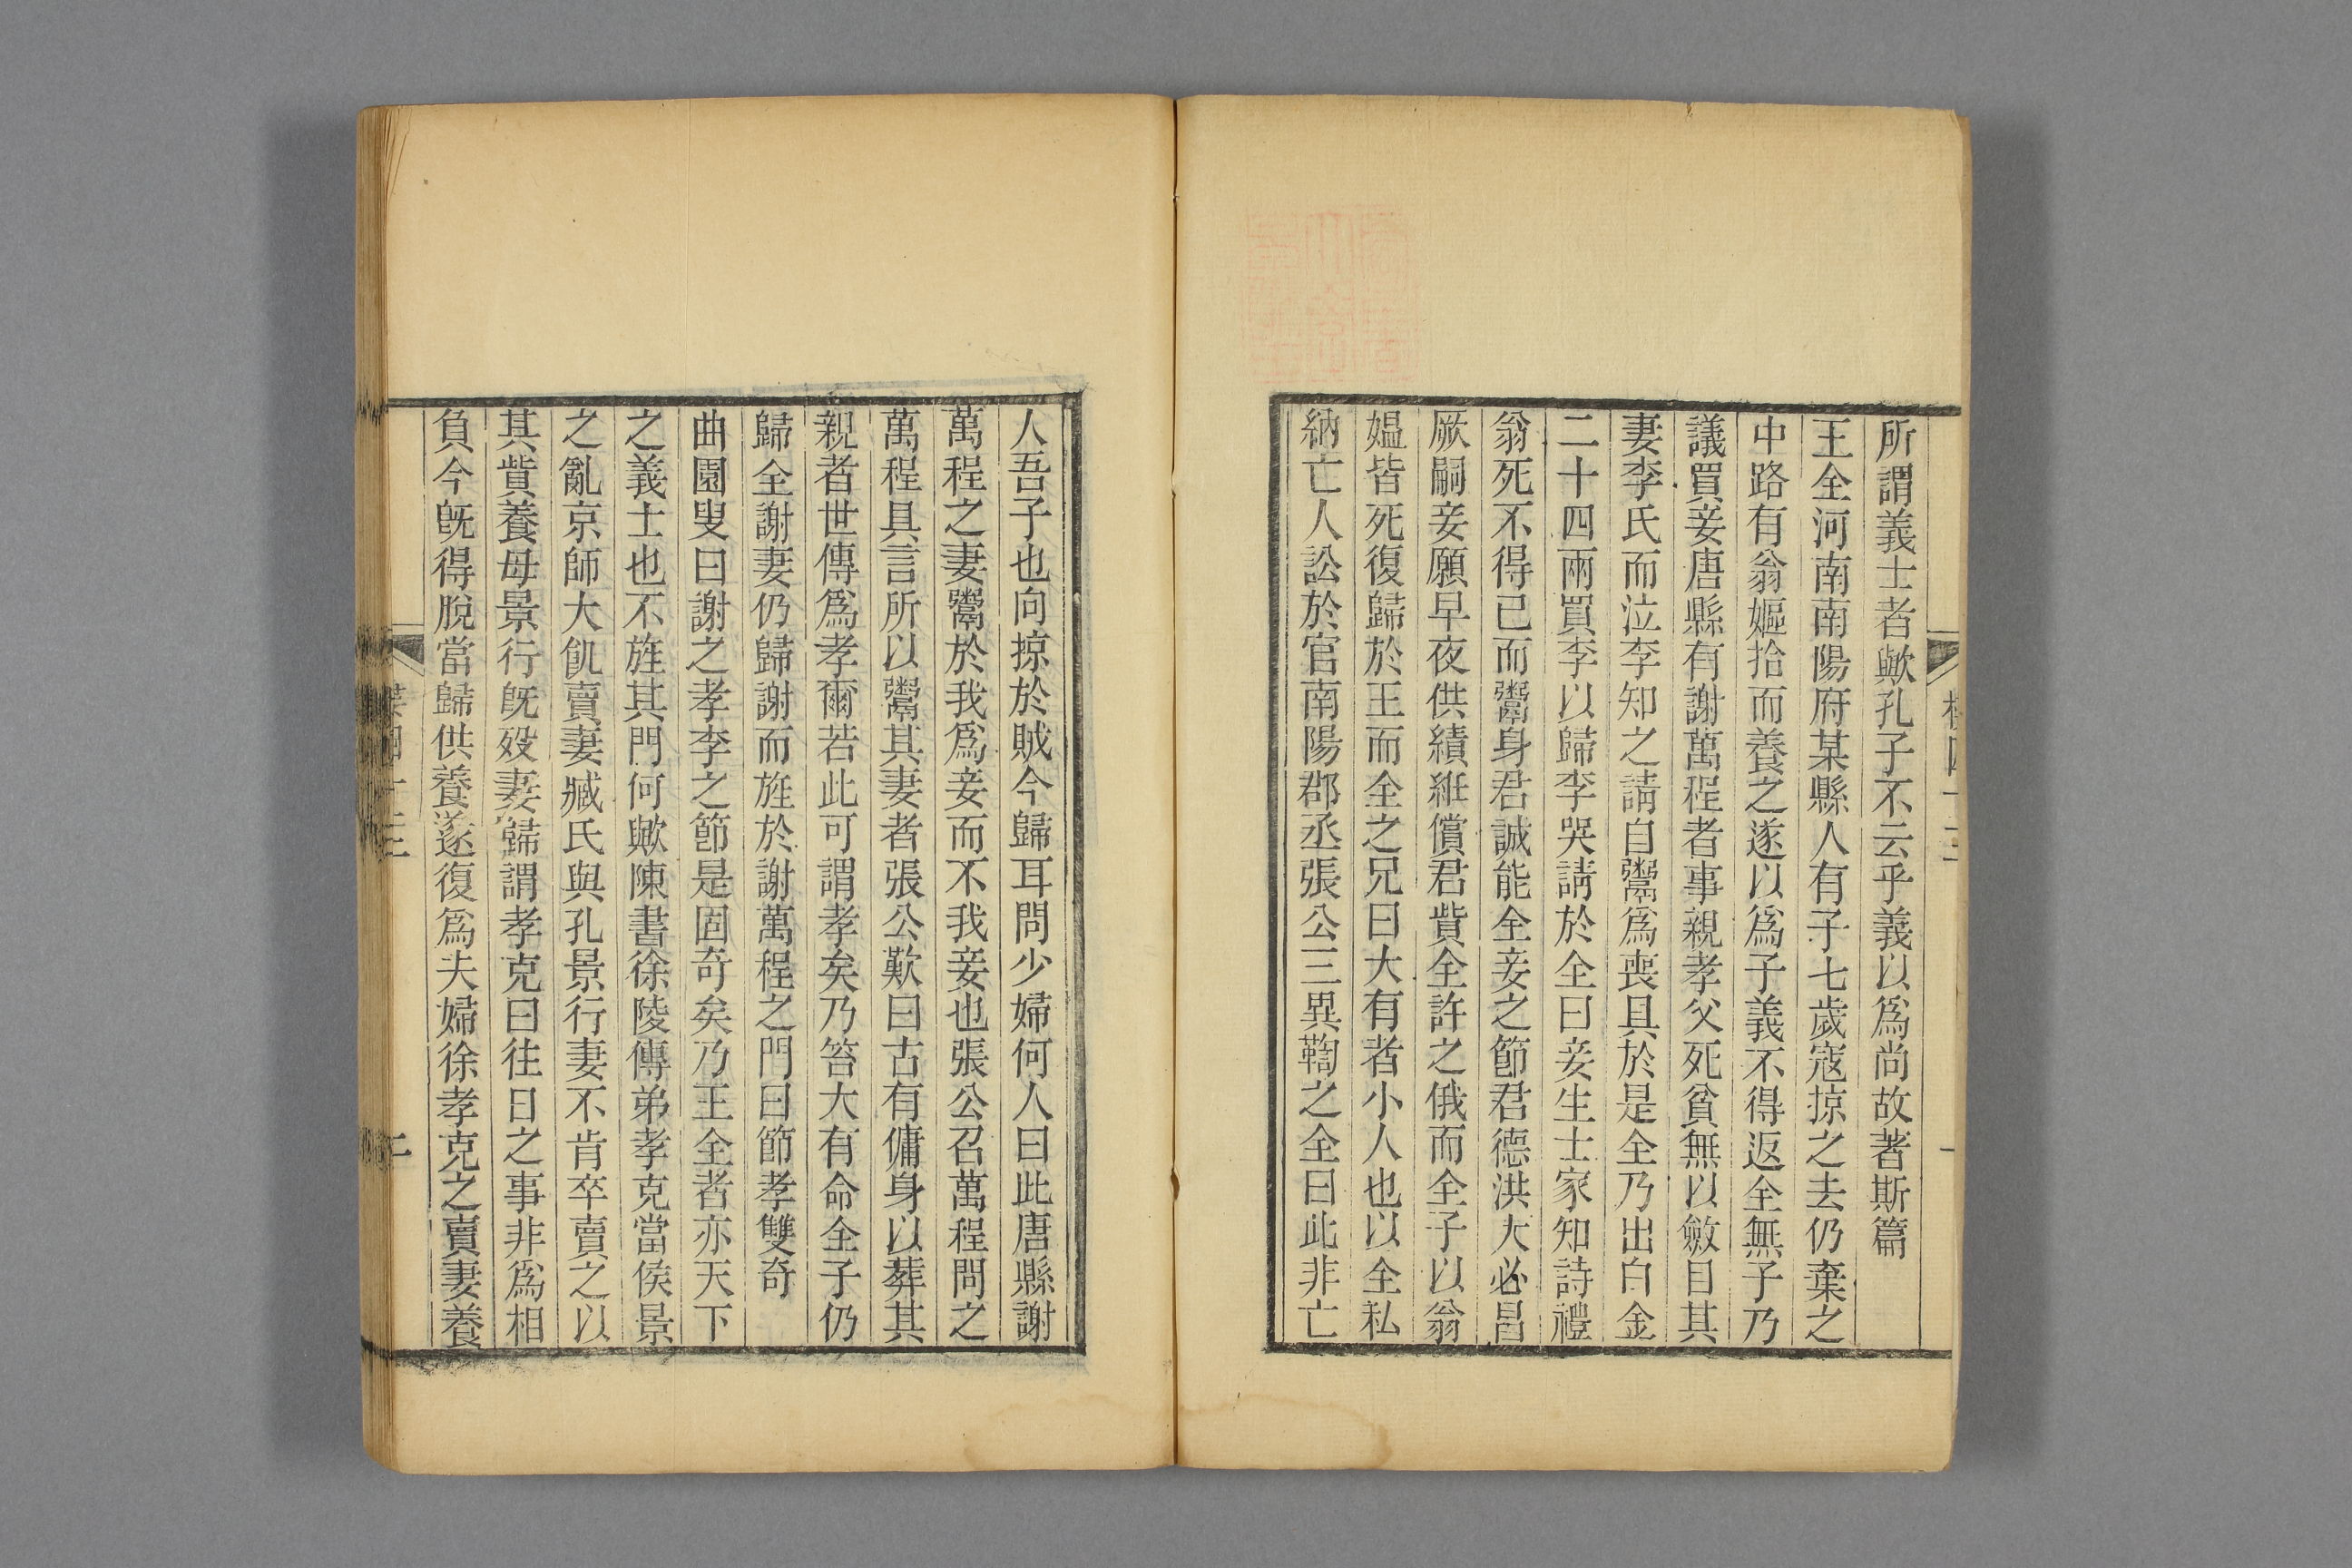 所謂義士者歟孔子不云乎義以爲尚故著斯篇
王全河南南陽府某縣人有子七歲寇掠之去仍棄之
中路有翁嫗拾而養之遂以爲子義不得返全無子乃
議買妾唐縣有謝萬程者事親孝父死貧無以斂目其
妻李氏而泣李知之請自鬻爲喪具於是全乃出白金
二十四兩買李以歸李哭請於全曰妾生士家知詩禮
翁死不得已而鬻身君誠能全妾之節君德洪大必昌
厥嗣妾願早夜供績紝償君貲全許之俄而全子以翁
媼皆死復歸於王而全之兄曰大有者小人也以全私
納亡人訟於官南陽郡丞張公三異鞫之全曰此非亡
人吾子也向掠於賊今歸耳問少婦何人曰此唐縣謝
萬程之妻鬻於我爲妾而不我妾也張公召萬程問之
萬程具言所以鬻其妻者張公歎曰古有傭身以葬其
親者世傳爲孝爾若此可謂孝矣乃笞大有命全子仍
歸全謝妻仍歸謝而旌於謝萬程之門曰節孝雙奇
曲園叟曰謝之孝李之節是固奇矣乃王全者亦天下
之義士也不旌其門何歟陳書徐陵傳弟孝克當侯景
之亂京師大飢賣妻臧氏與孔景行妻不肯卒賣之以
其貲養母景行旣歿妻歸謂孝克曰往日之事非爲相
負今旣得脫當歸供養遂復爲夫婦徐孝克之賣妻養